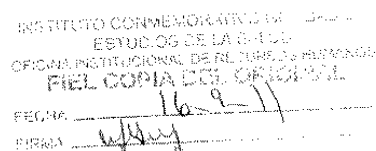 INSTITUTO CONMEMORATIVO
ESTUDIOS DE LA SALUD
OFICINA INSTITUCIONAL DE RECURSOS HUMANOS
FIEL COPIA DEL ORIGINAL
FECHA 16-9-11
FIRMA